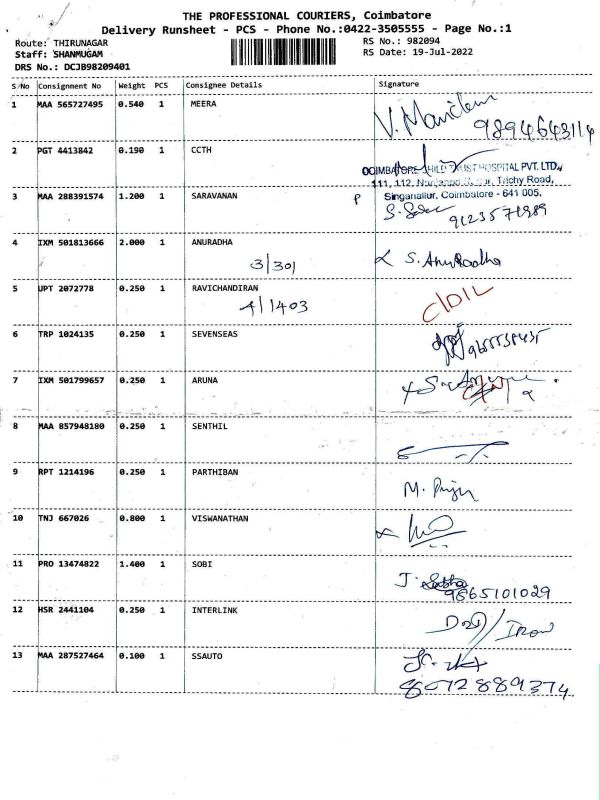 THE PROFESSIONAL COURIERS, Coimbatore
Delivery Runsheet - PCS - Phone No.:0422-3505555 - Page No.:1
Route: THIRUNAGAR
RS No.: 982094
Staff: SHANMUGAM
RS Date: 19-Jul-2022
DRS No.: DCJB98209401
S/No Consignment No Weight PCS Consignee Details Signature
1 MAA 565727495 0.540 1 MEERA
9894643114
2 PGT 4413842 0.190 1 CCTH
COIMBATORE CHILD TRUST HOSPITAL PVT. LTD.,
111, 112, Trichy Road,
Singanallur, Coimbatore - 641 005.
3 MAA 288391574 1.200 1 SARAVANAN P
4 IXM 501813666 2.000 1 ANURADHA
3/301
S. Anuradha
5 UPT 2072778 0.250 1 RAVICHANDIRAN
4/1403
C/DIL
6 TRP 1024135 0.250 1 SEVENSEAS
7 IXM 501799657 0.250 1 ARUNA
8 MAA 857948180 0.250 1 SENTHIL
9 RPT 1214196 0.250 1 PARTHIBAN
M.
10 TNJ 667026 0.800 1 VISWANATHAN
11 PRO 13474822 1.400 1 SOBI
J.
9865101029
12 HSR 2441104 0.250 1 INTERLINK
13 MAA 287527464 0.100 1 SSAUTO
80728 89374